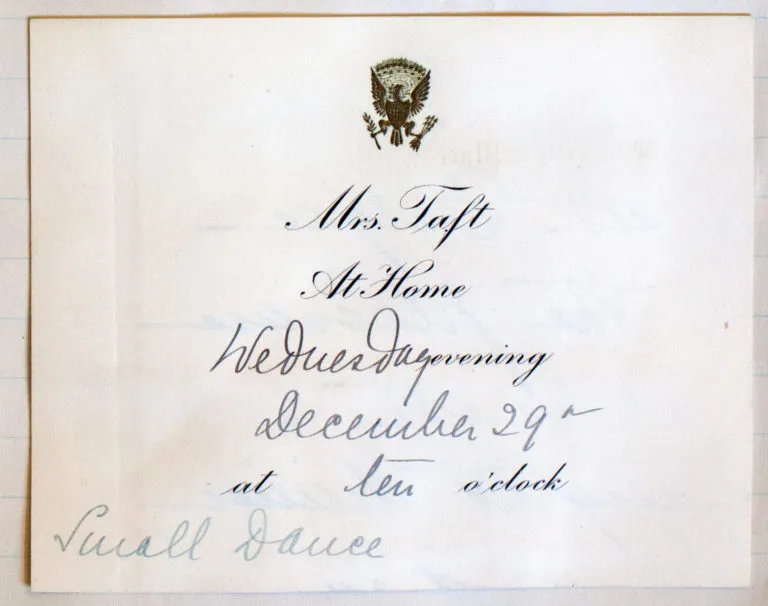 Mrs. Taft
At Home
Wednesday evening
December 29th
at ten o'clock
Small Dance